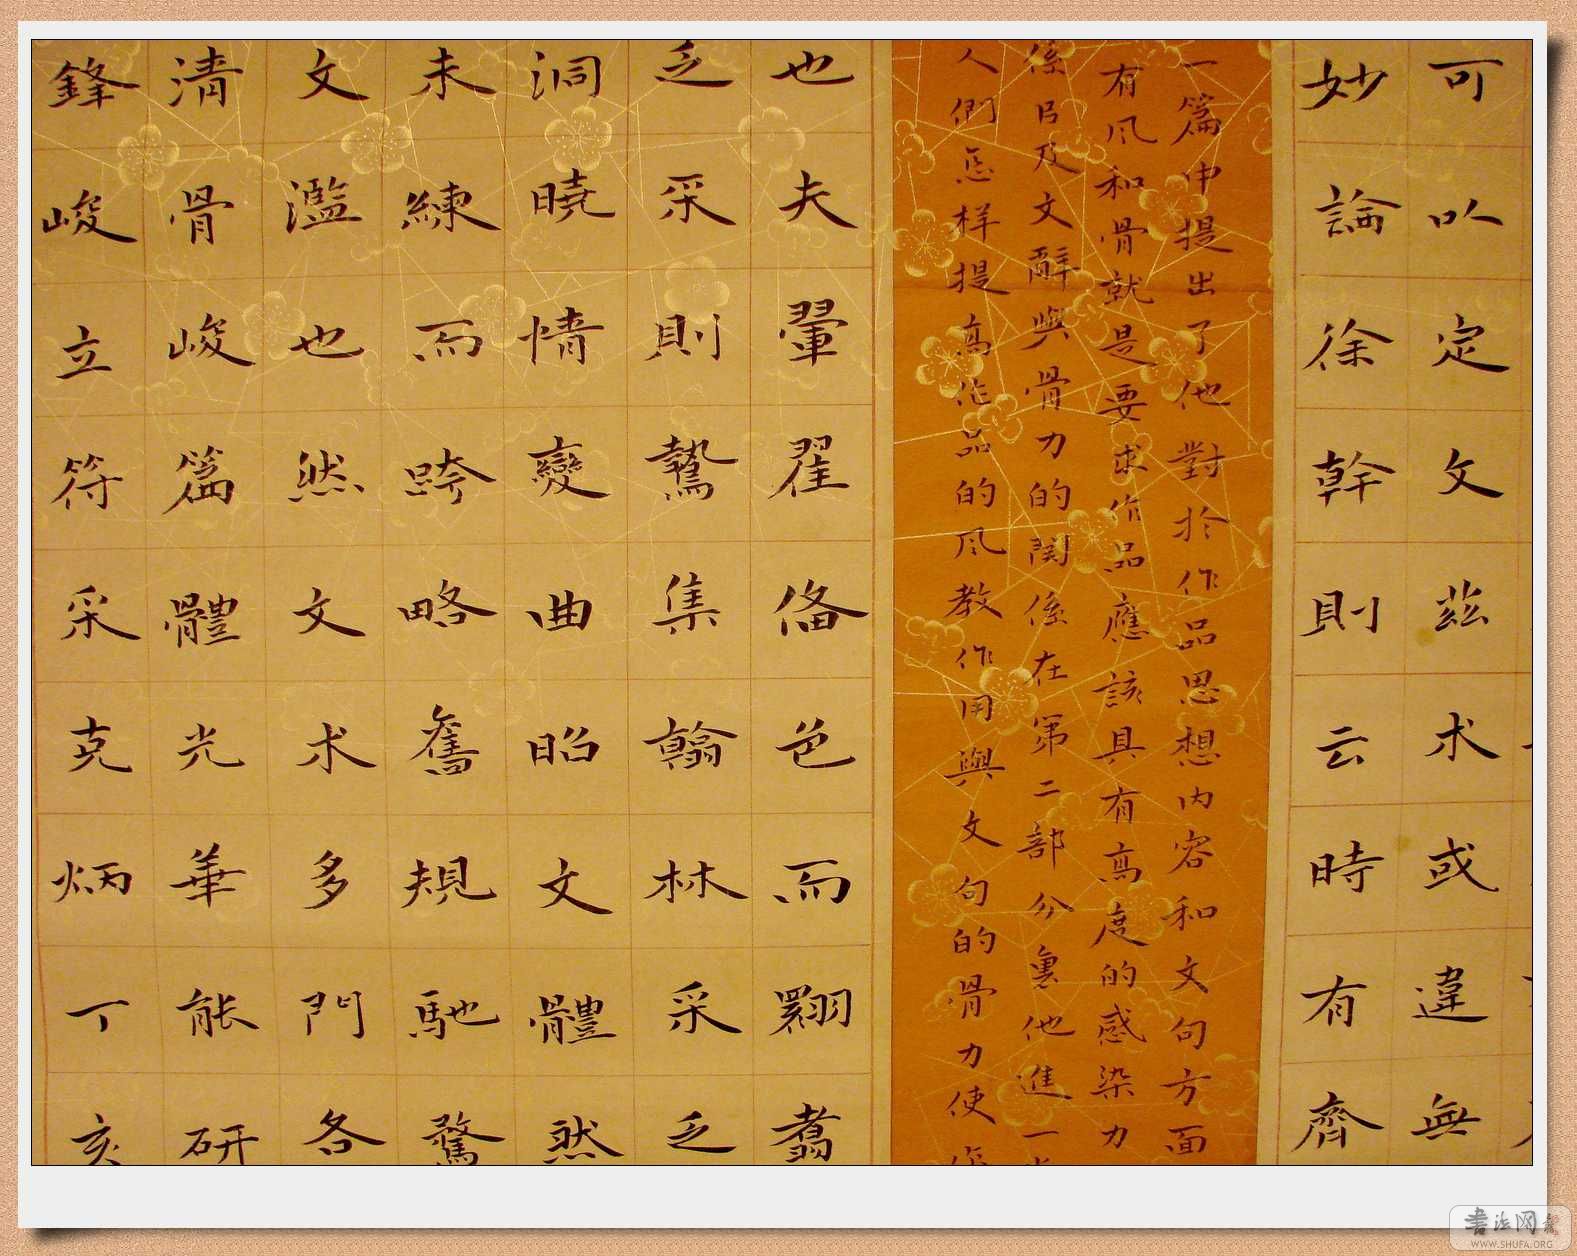 可以定文茲术或違無
妙論徐幹則云時有齊
一篇中提出了他對於作品思想内容和文句方面
有风和骨就是要求作品應該具有高度的感染力
係以及文辭與骨力的関係在第二部分裏他進一
人們怎样提高作品的风教作用與文句的骨力使作
也夫翬翟俻色而翾翥
乏采則鷙集翰林采乏
洞曉情變曲昭文體然
未練而跨略舊規馳騖
文濫也然文术多門各
清骨峻篇體光華能研
鋒峻立符采克炳丁亥
书法网
WWW.SHUFA.ORG